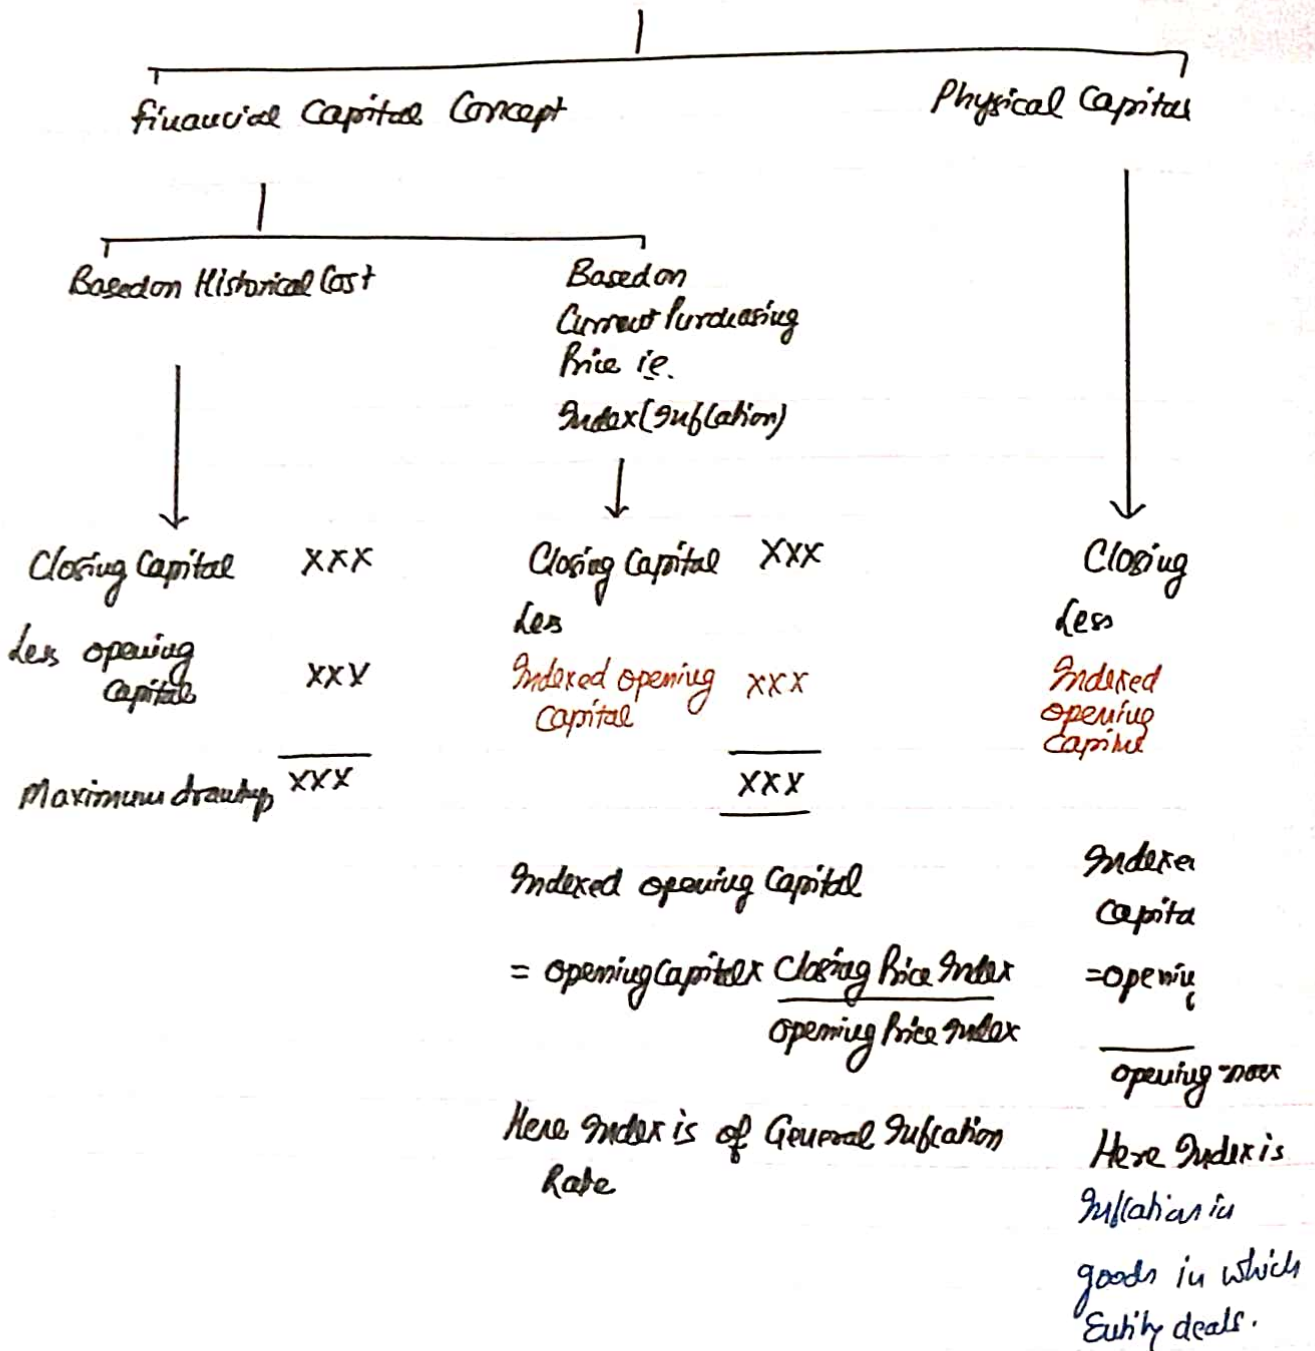 financial Capital Concept
Physical Capital
Based on Historical Cost
Based on
Current Purchasing
Price i.e.
Index (Inflation)
Closing Capital XXX
Less opening
Capital XXX
Maximum XXX
Closing Capital XXX
Less
Indexed opening XXX
Capital
XXX
Indexed opening Capital
= opening Capital x Closing Price Index
opening Price Index
Here Index is of General Inflation
Rate
Closing
Less
Indexed
opening
Capital
Indexe
Capita
= openi
opening
Here Index is
Inflation in
goods in which
Entity deals.